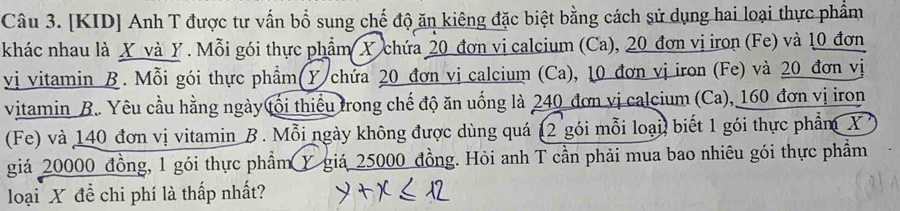 Câu 3. [KID] Anh T được tư vấn bổ sung chế độ ăn kiêng đặc biệt bằng cách sử dụng hai loại thực phẩm
khác nhau là X và Y. Mỗi gói thực phẩm X chứa 20 đơn vị calcium (Ca), 20 đơn vị iron (Fe) và 10 đơn
vị vitamin B. Mỗi gói thực phẩm Y chứa 20 đơn vị calcium (Ca), 10 đơn vị iron (Fe) và 20 đơn vị
vitamin B. Yêu cầu hằng ngày tối thiểu trong chế độ ăn uống là 240 đơn vị calcium (Ca), 160 đơn vị iron
(Fe) và 140 đơn vị vitamin B. Mỗi ngày không được dùng quá 12 gói mỗi loại, biết 1 gói thực phẩm X
giá 20000 đồng, 1 gói thực phẩm Y giá 25000 đồng. Hỏi anh T cần phải mua bao nhiêu gói thực phẩm
loại X để chi phí là thấp nhất?
y + x ≤ 12